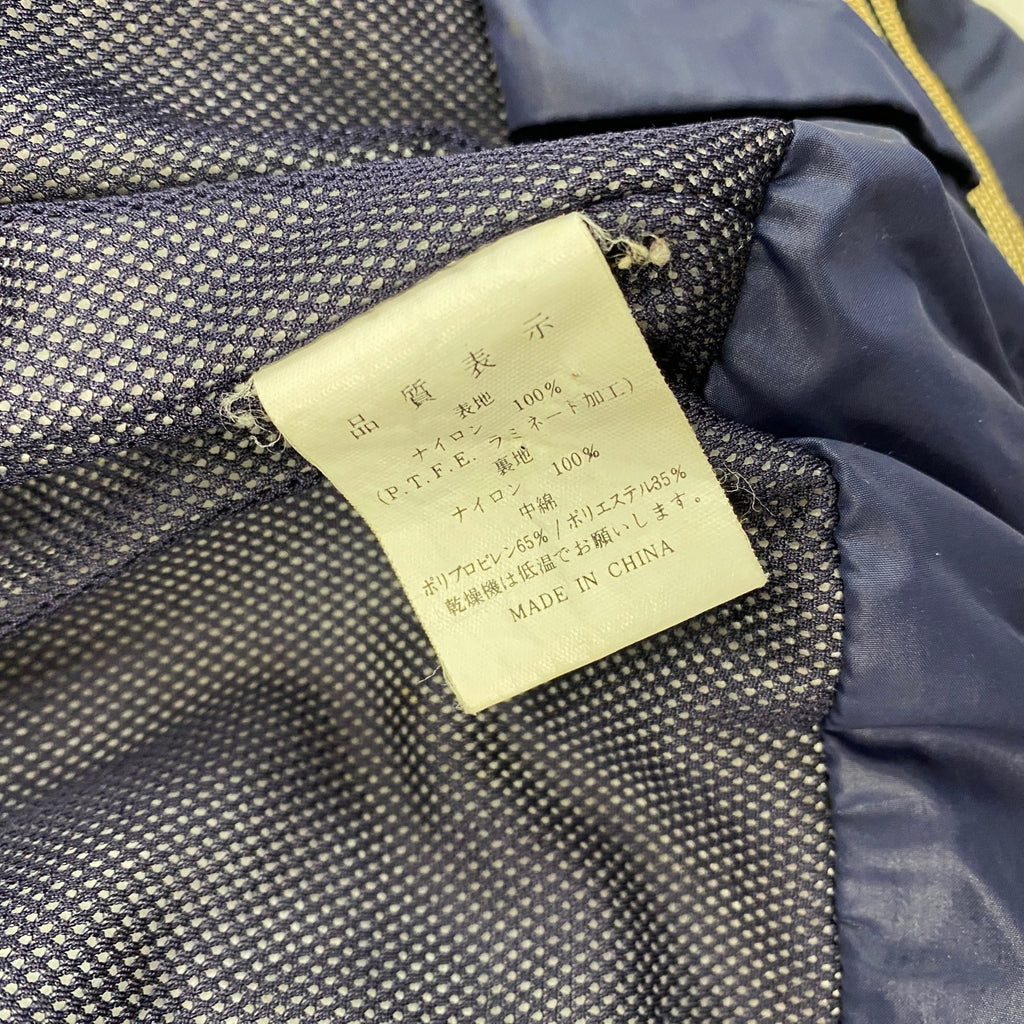 品質表示
表地
ナイロン 100%
(P.T.F.E. ラミネート加工)
裏地
ナイロン 100%
中綿
ポリプロピレン65% / ポリエステル35%
乾燥機は低温でお願いします。
MADE IN CHINA